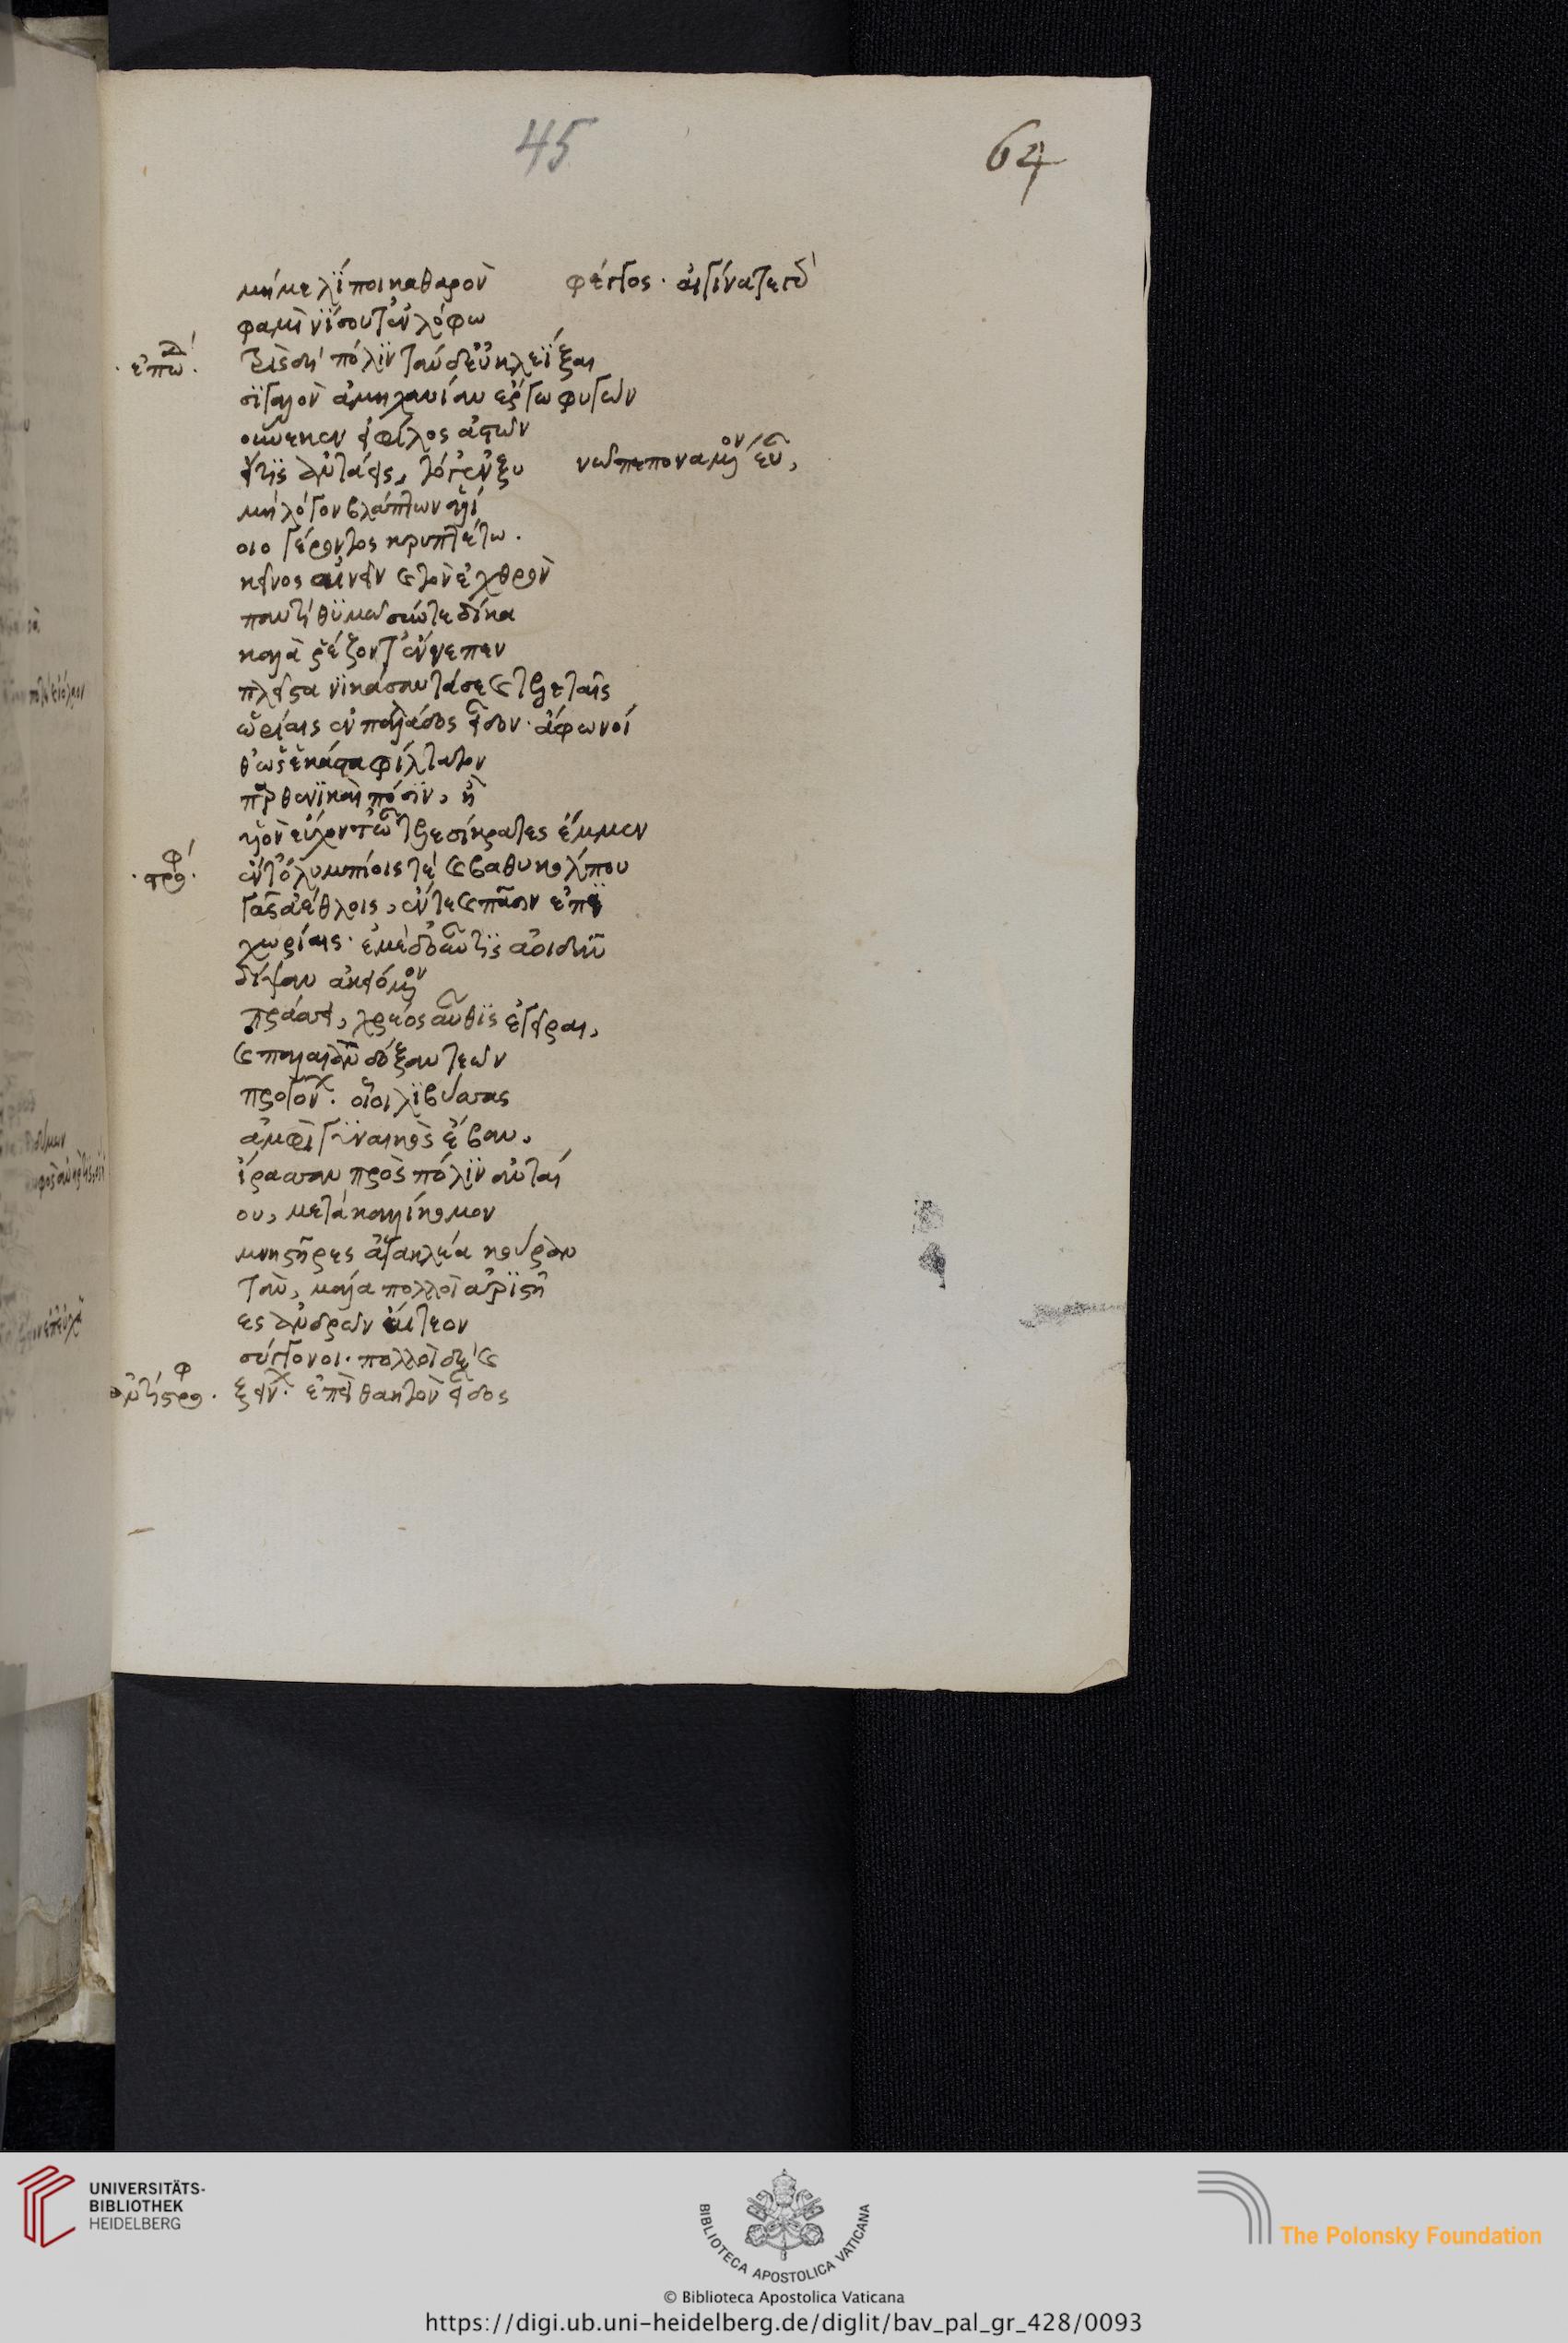 45
64
μή με λΐποι καθαρὸν φέγγος. αἰγίνα τε γδ'
φαμὶ νΐσου τ' ἐν λόφω
ἐπωδ. τρὶς δὴ πόλϊν τάνδ' εὐκλεΐξαι
σϊγαλὸν ἀμηχανίαν ἔργω φυγών
οὕνεκεν εἰ φίλος ἀστῶν
εἴ τϊς ἀντάεις, τό γ' ἐν ξυ νῶ πεποναμένον εὖ,
μὴ λόγον βλάπτων ἁλί
οιο γέροντος κρυπτέτω.
κεῖνος αἰνεῖν καὶ τὸν ἐχθρὸν
παντὶ θϋμῶ σύν τε δίκα
καλὰ ῥέζοντ' ἔννεπεν
πλεῖστα νϊκάσαντά σε καὶ τελεταῖς
ὡρίαις ἐν παλλάδος εἶδον. ἄφωνοί
θ' ὡς ἑκάστα φίλτατον
παρθενϊκαὶ πόσϊν, ἢ
υἱὸν εὔχοντ' ὦ τελεσίκρατες ἔμμεν
στρο φ. ἐν τ' ὀλυμπίοις τέ καὶ βαθυκόλπου
γᾶς ἀέθλοις, ἐν τε καὶ πᾶσιν ἐπϊ
χωρίαις. ἐμὲ δ' οὖν τϊς ἀοιδᾶν
δίψαν ἀκειόμενον
πράσσει, χρέος αὖθϊς ἐγεῖραι,
καὶ παλαιὰν δόξαν τεῶν
προγόνων. οἷοι λϊβύσσας
ἀμφὶ γϋναικὸς ἔβαν,
ἴρασσαν πρὸς πόλϊν ἀνταί
ου, μετὰ καλλίκομον
μνηστῆρες ἀγακλέα κούραν
τὰν, μάλα πολλοὶ ἀρϊστῆ
ες ἀνδρῶν αἴτεον
σύγγονοι. πολλοὶ δὲ καὶ
ἀντιστρο φ. ξείνων. ἐπεὶ θαητὸν εἶδος
UNIVERSITÄTS-
BIBLIOTHEK
HEIDELBERG
BIBLIOTECA APOSTOLICA VATICANA
The Polonsky Foundation
© Biblioteca Apostolica Vaticana
https://digi.ub.uni-heidelberg.de/diglit/bav_pal_gr_428/0093